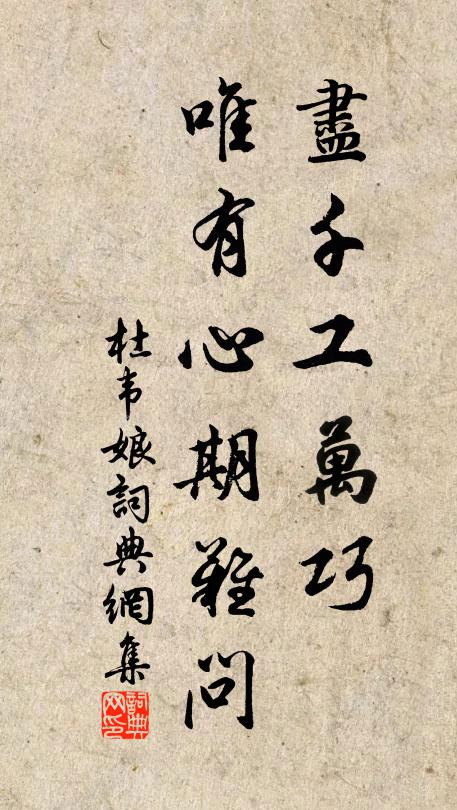 盡千工萬巧
唯有心期難問
杜韦娘詞典網集
詞典
网印